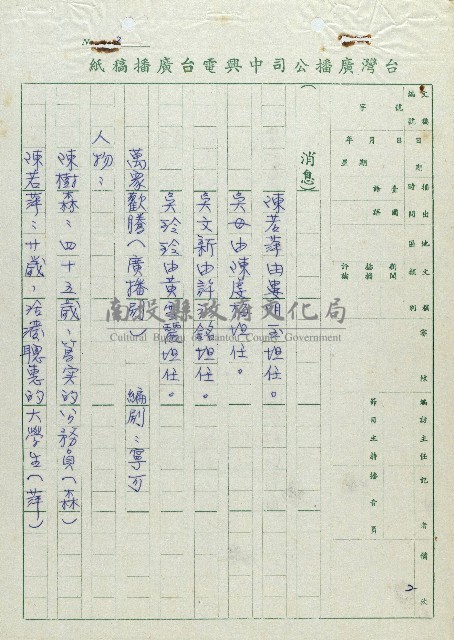 No. 2
台灣廣播公司中興電台廣播稿紙
文稿編號
字 號
日期
年 月 日
星期
播出時間
地區
文類別
國語
臺語
新聞
廣播
評論
撰寫
編訪主任
記者
節目主持
播音員
備
（消息）
陳若萍由婁明玉担任。
吳母由陳虔梅担任。
吳文新由許 銘担任。
吳玲玲由黃雪馨担任。
萬家歡騰（廣播劇） 編劇：寧可
人物：
陳樹森：四十五歲，篤实的公務員（森）
陳若萍：廿歲，活潑聰惠的大學生（萍）
2
南投縣政府文化局
Cultural Bureau of Nantou County Government